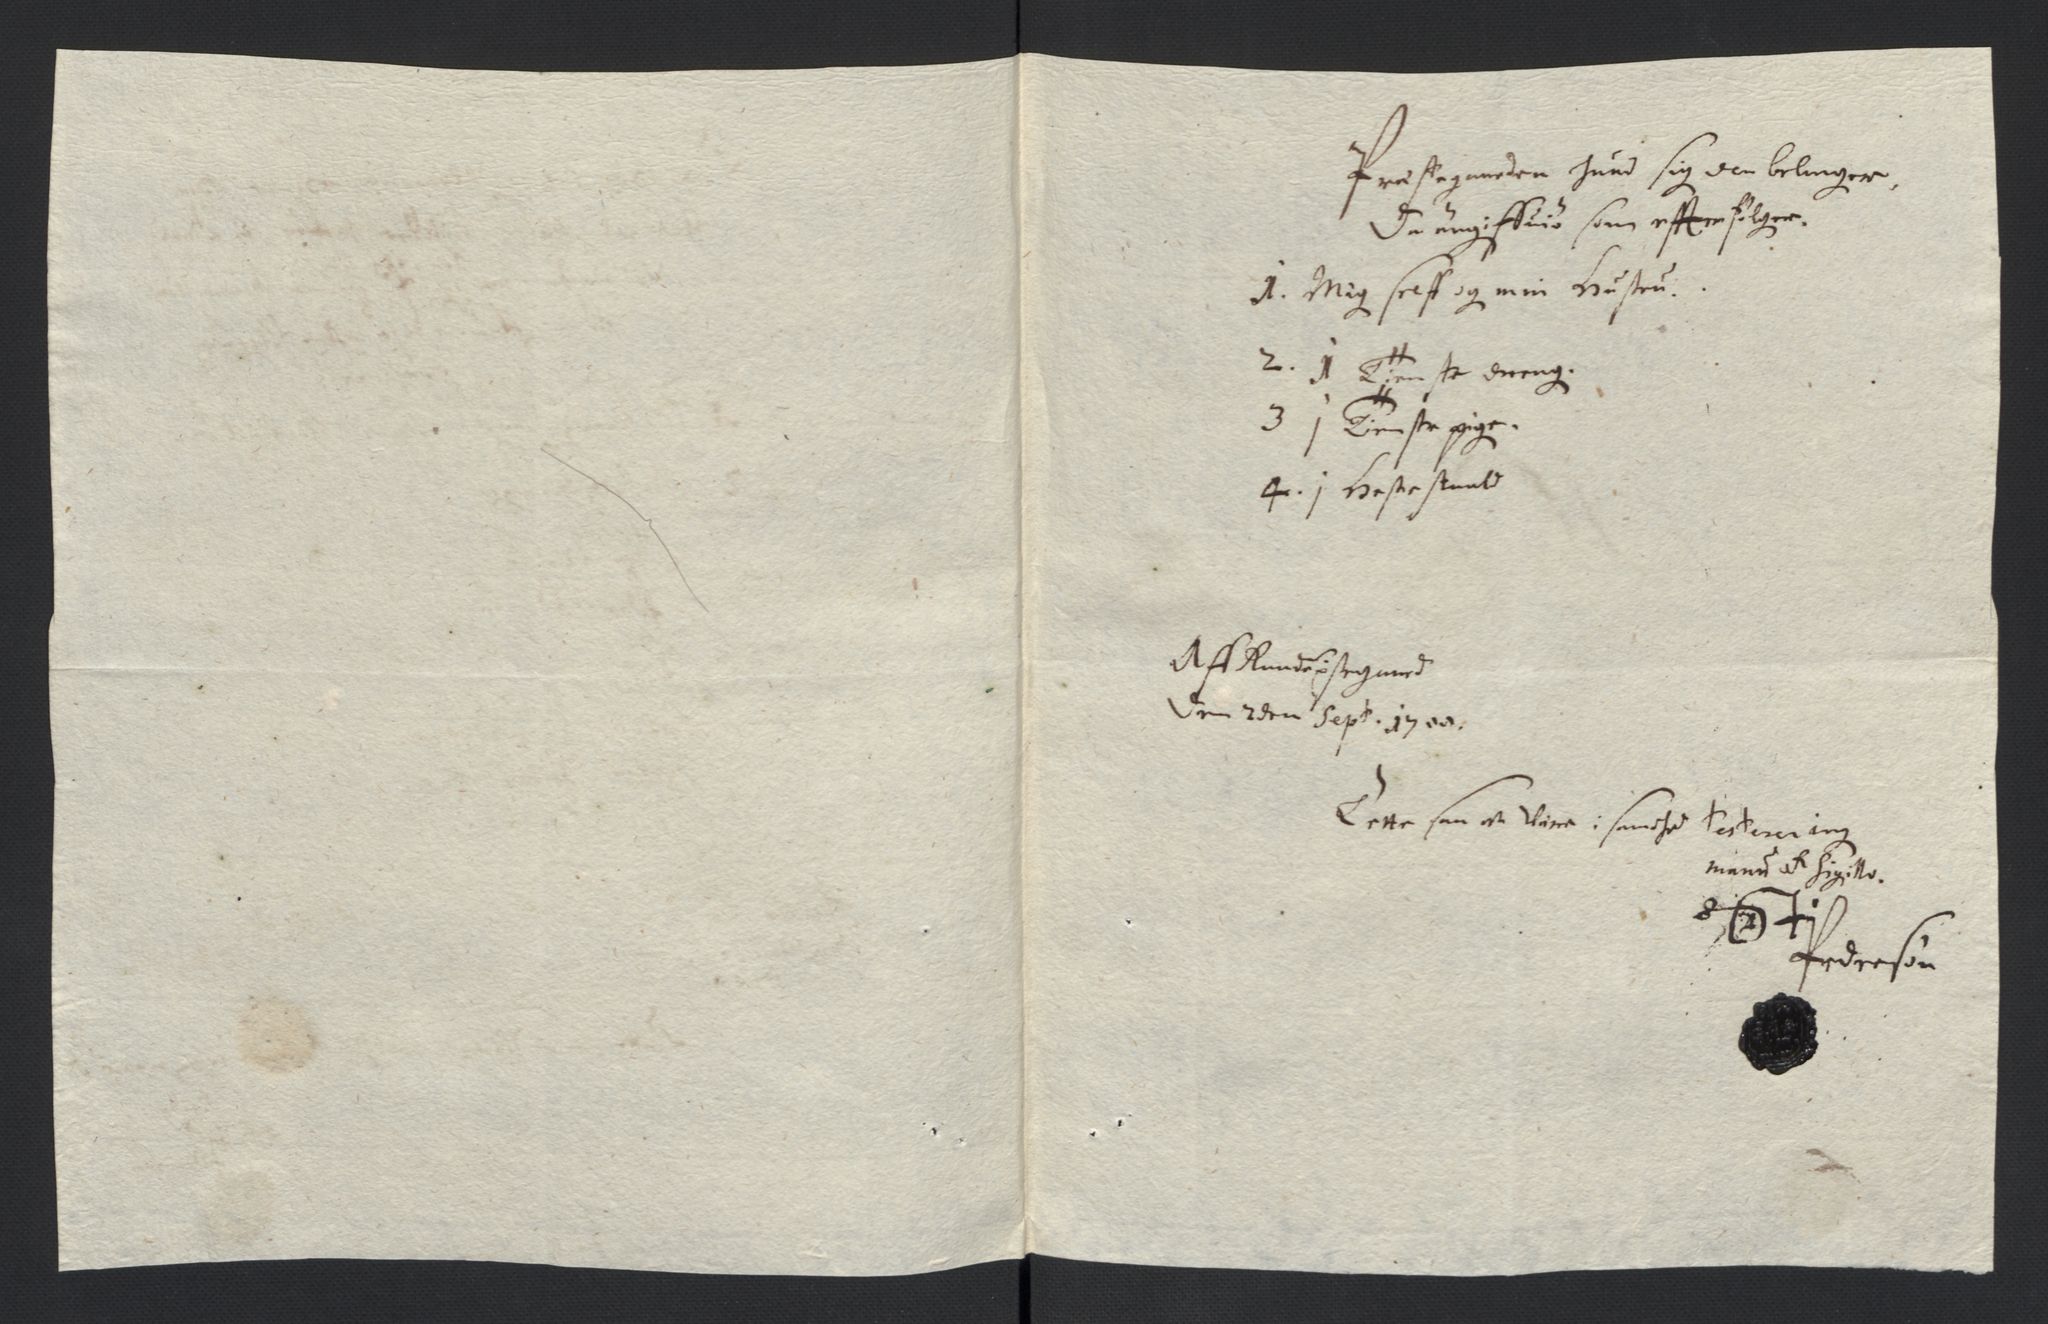 Præstegaarden hvad sig den belanger,
Da angiffvis som effterfølger.
1. Mig selff og min Hustru.
2. 1 Tienste dreng.
3 1 Tienste pige.
4. 1 Heste
Aff præstegaard
Den 2den Sept. 1700.
Dette saa at være i sandhed testerer ieg
manu et Sigillo.
Pedersøn